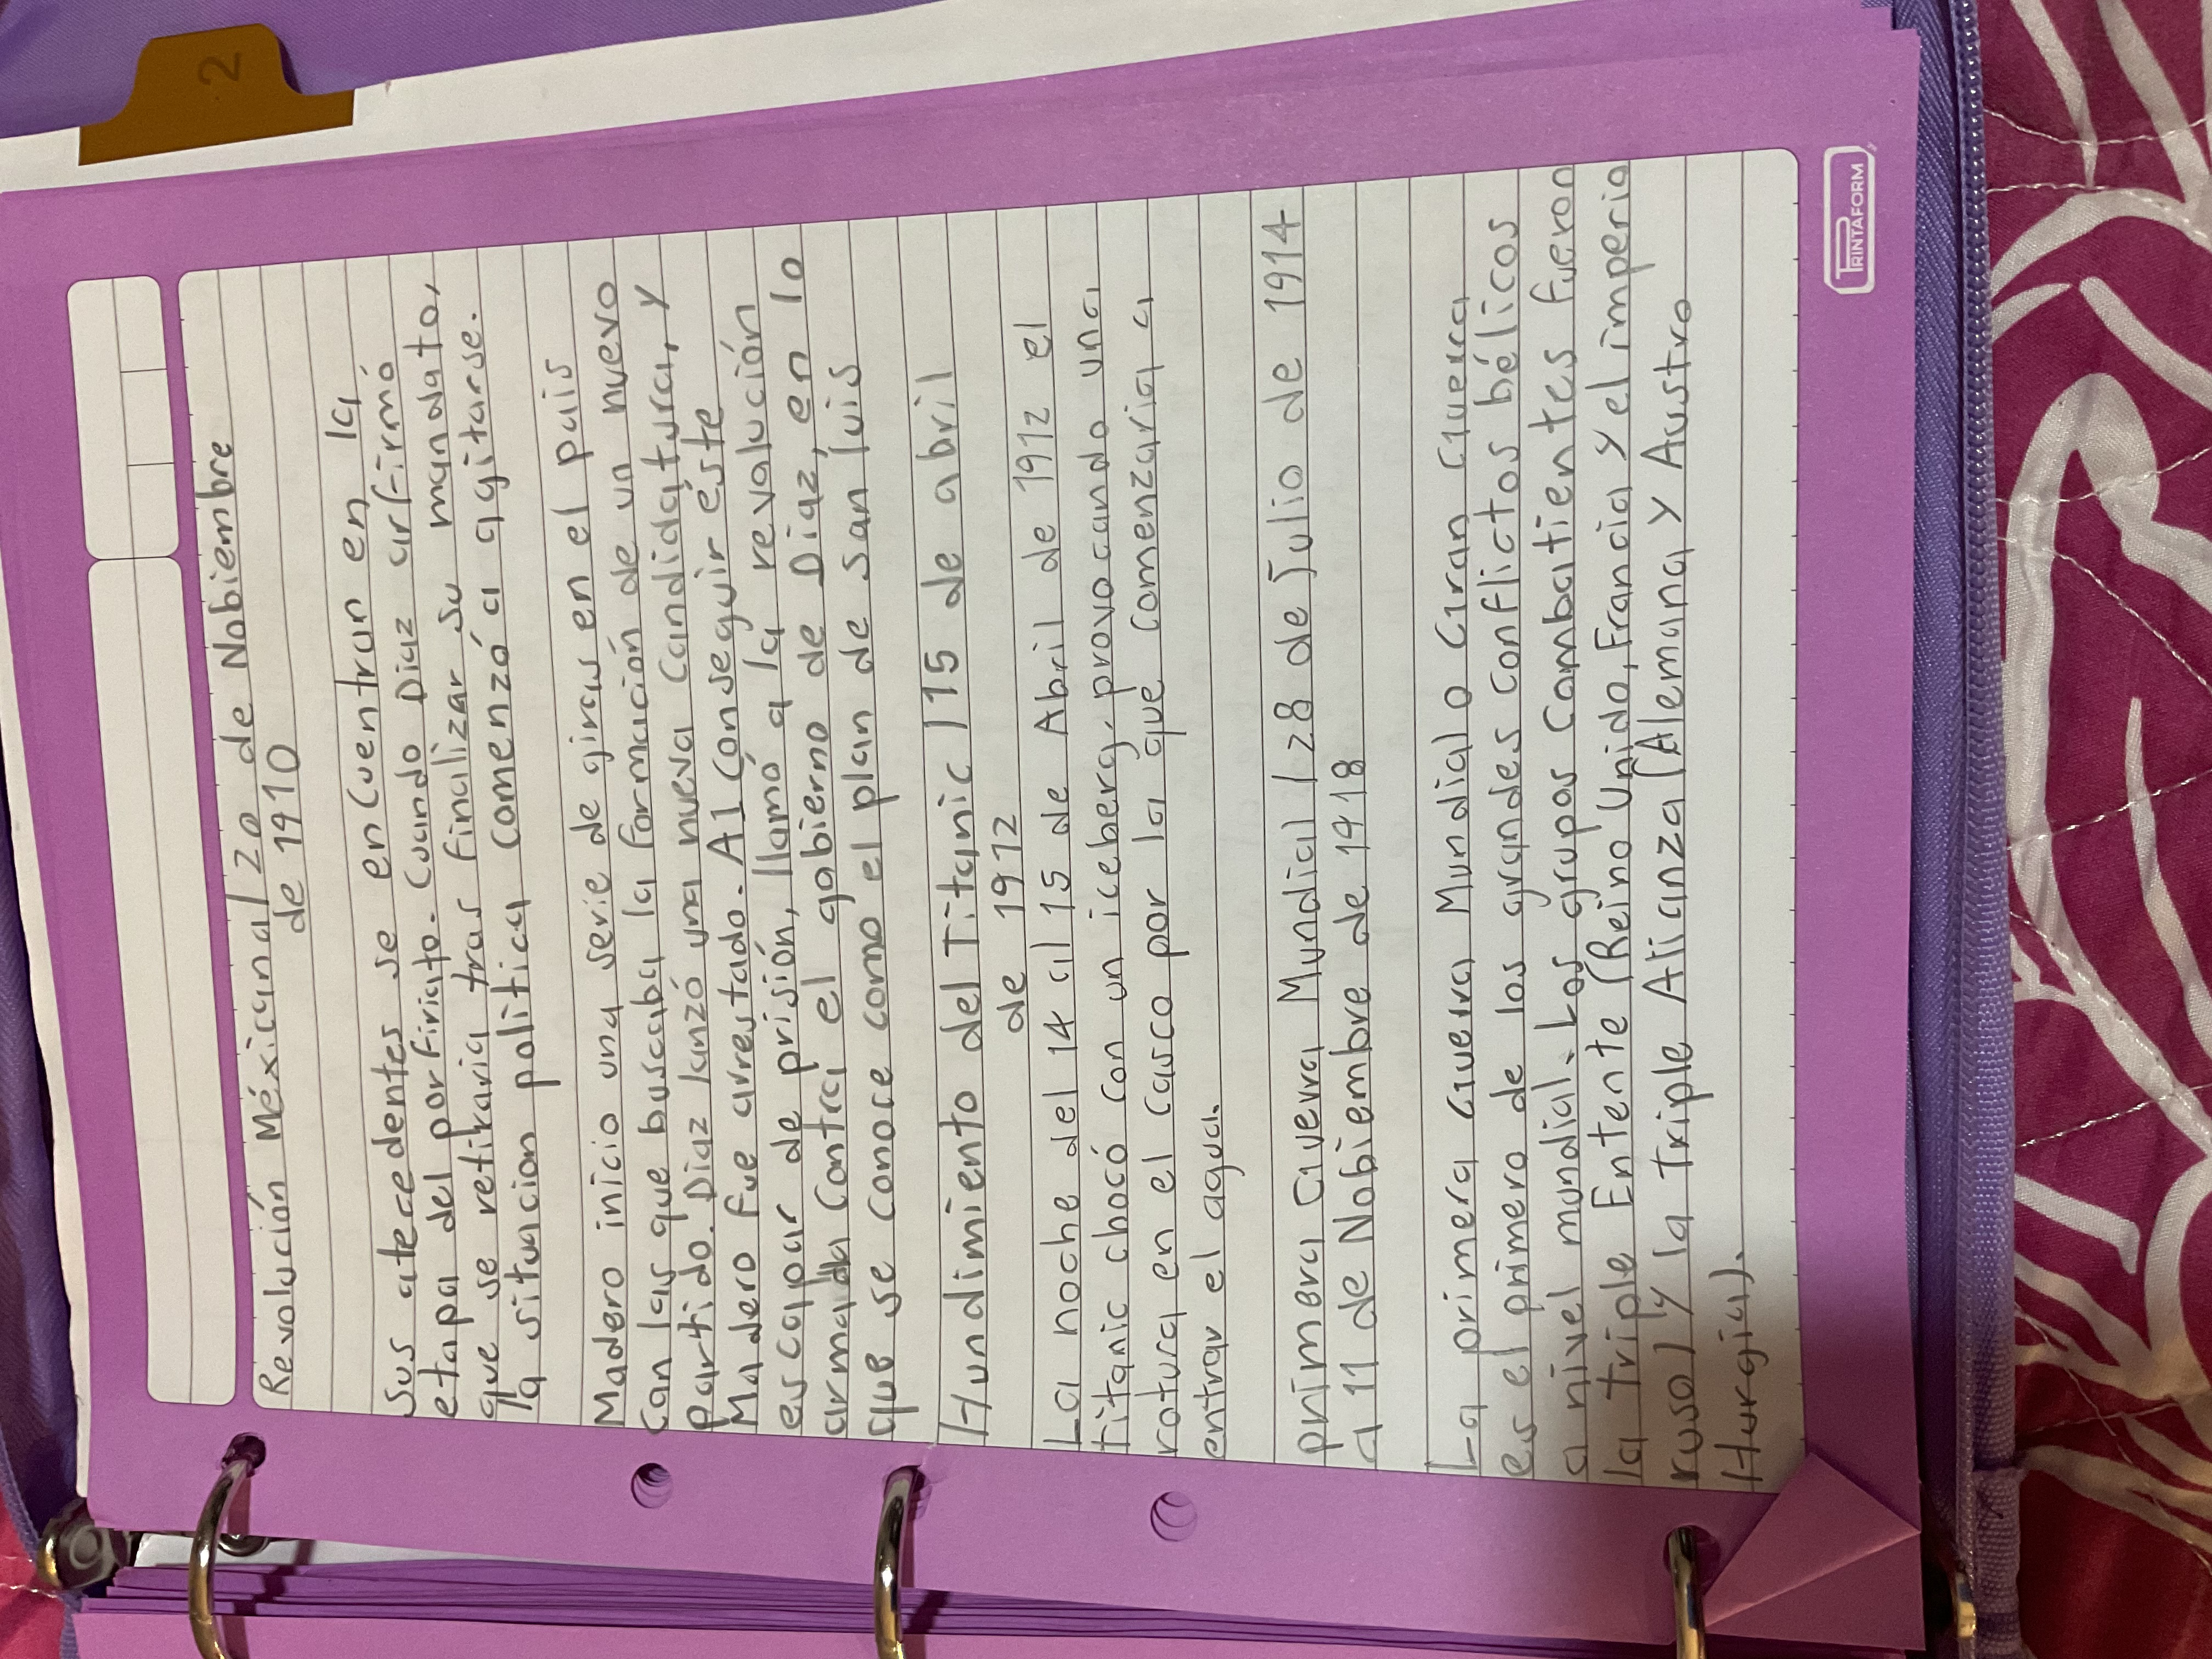 2
Revolución Méxicana/20 de Nobiembre
de 1910
Sus atecedentes se encuentran en la
etapa del porfiriato. Cuando Diaz arfirmó
que se retiraria tras finalizar su mandato,
la situacion politica comenzó a agitarse.
Madero inicio una serie de giras en el pais
con las que buscaba la formación de un nuevo
partido. Diaz lanzó una nueva candidatura, y
Madero fue arrestado. Al conseguir éste
escapar de prisión, llamó a la revolución
armada contra el gobierno de Diaz, en lo
que se conoce como el plan de san luis
Hundimiento del Titanic/15 de abril
de 1912
La noche del 14 al 15 de Abril de 1912 el
titanic chocó con un iceberg, provocando una
rotura en el casco por la que comenzaria a
entrar el agua.
primera Guerra Mundial/28 de Julio de 1914
a 11 de Nobiembre de 1918
La primera Guerra Mundial o Gran Guerra
es el primero de los grandes conflictos bélicos
a nivel mundial. Los grupos combatientes fueron
la triple Entente (Reino Unido, Francia y el imperio
ruso) y la triple Alianza (Alemania y Austro
Hurgia).
PRINTAFORM